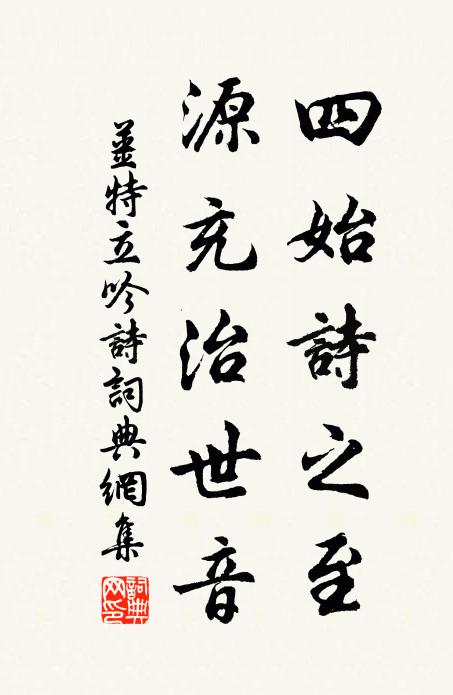 四始詩之至
源充治世音
姜特立吟詩詞典網集
詞典網印